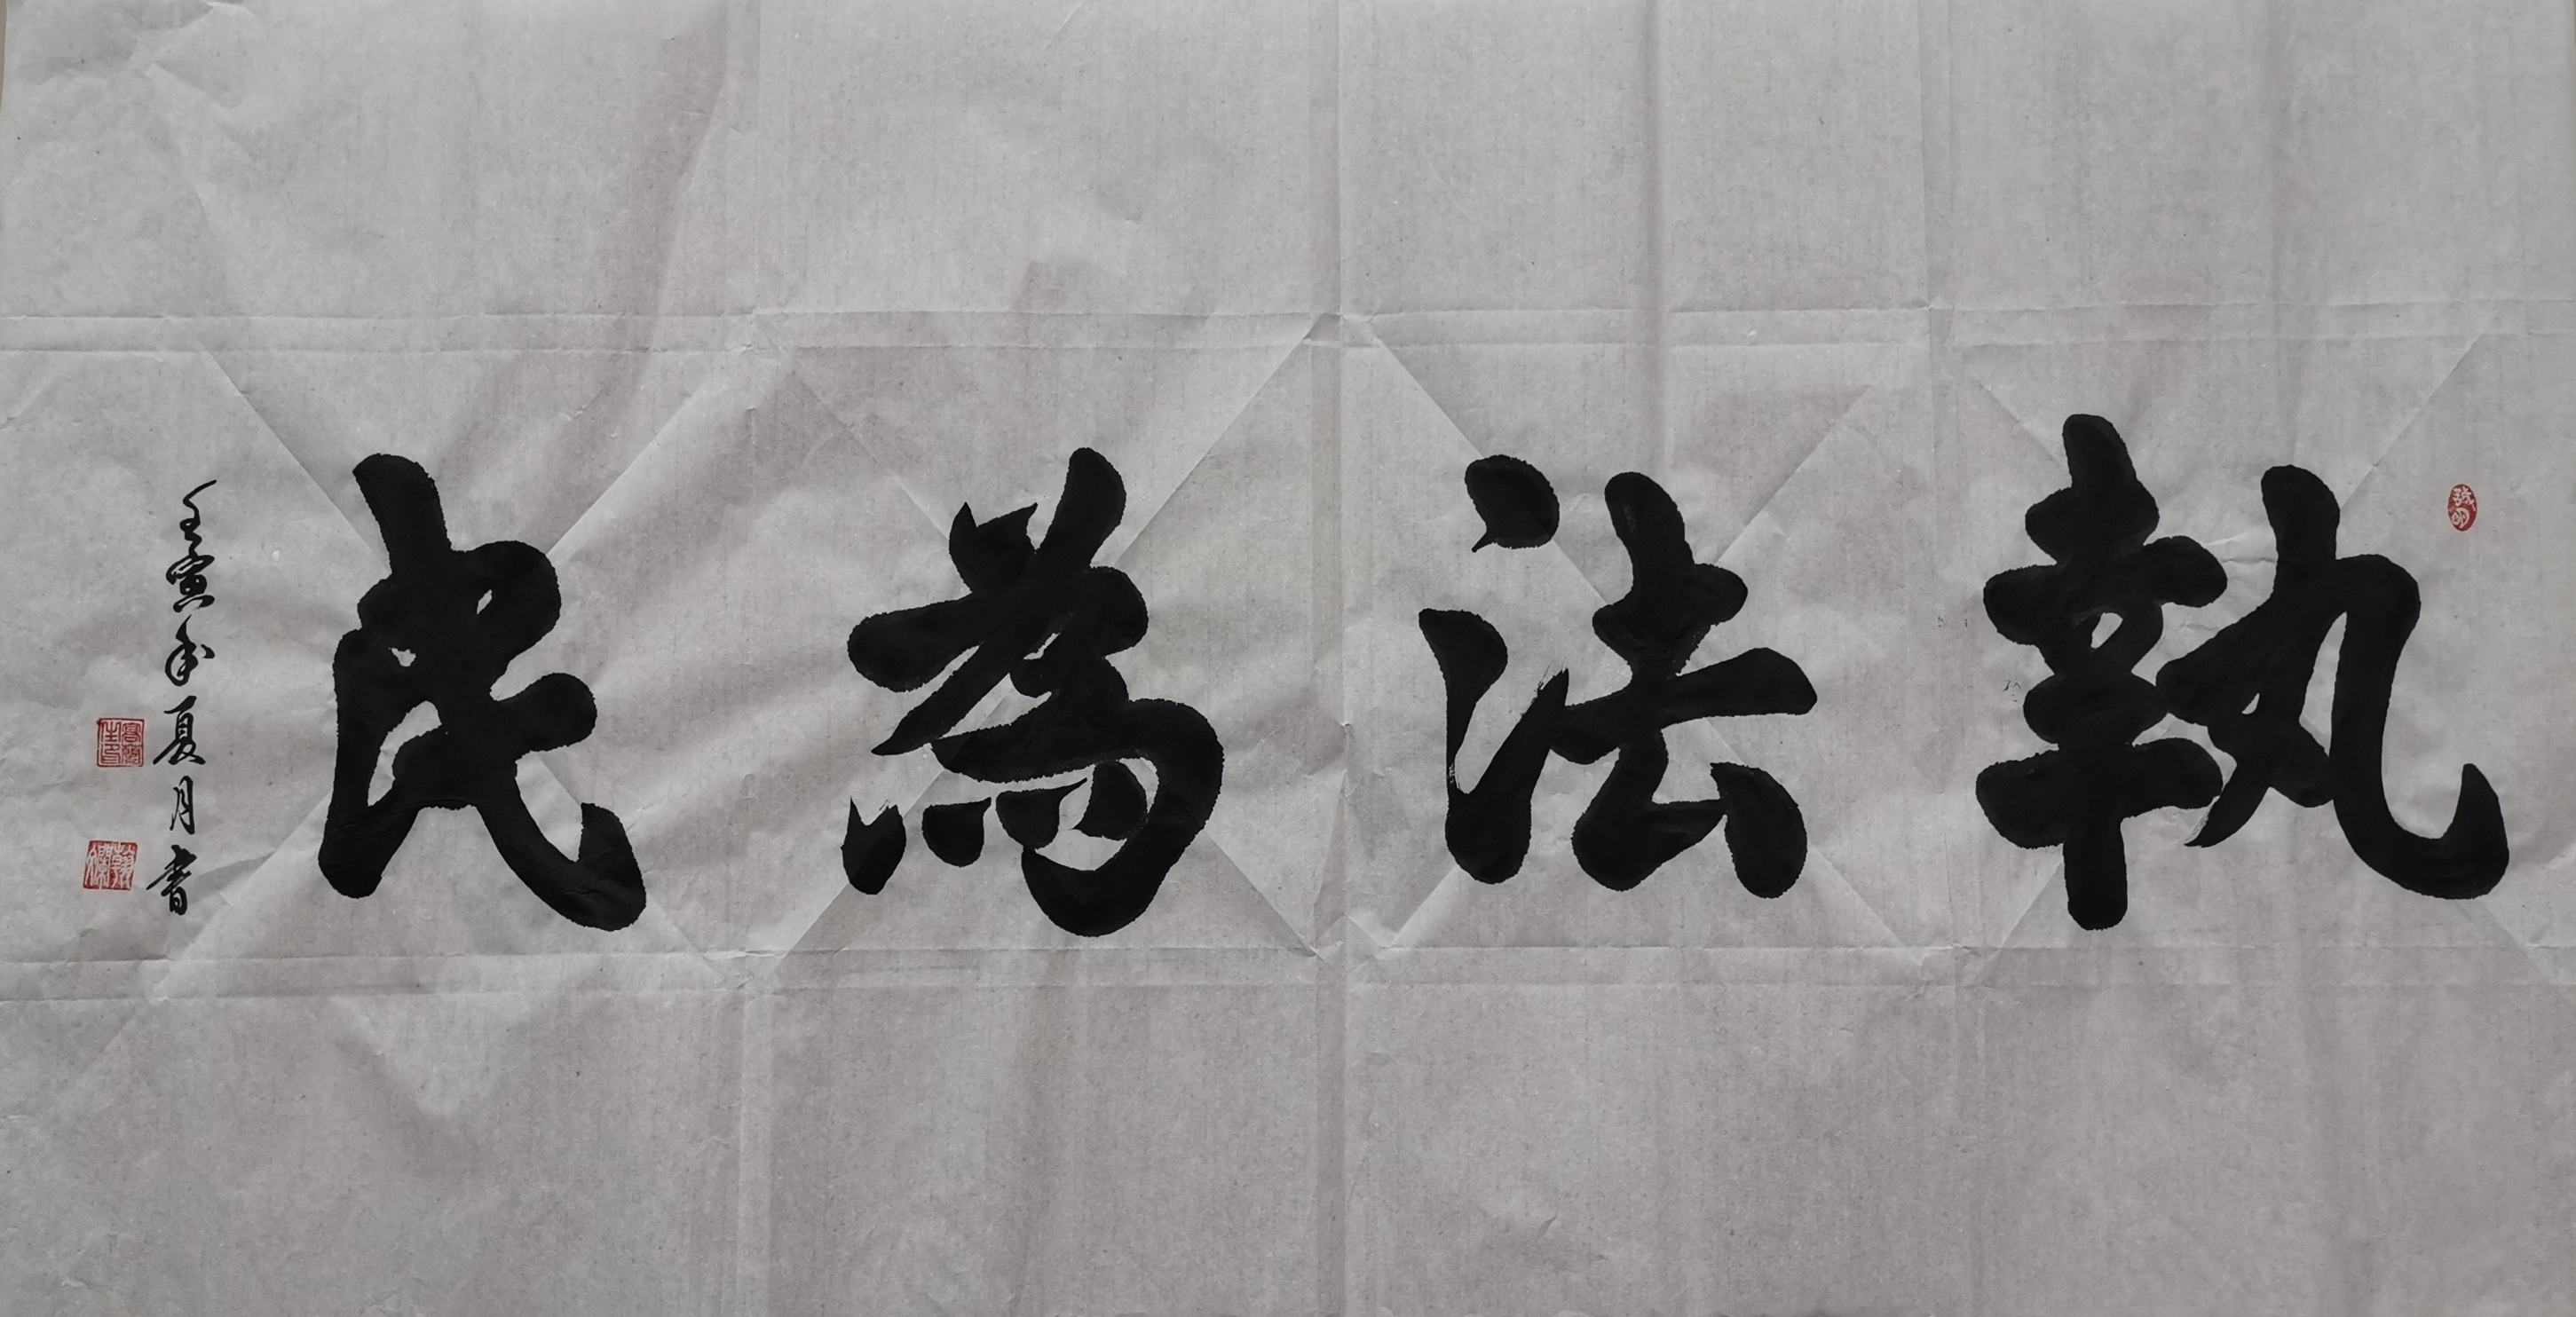 執法為民
壬寅年夏月書